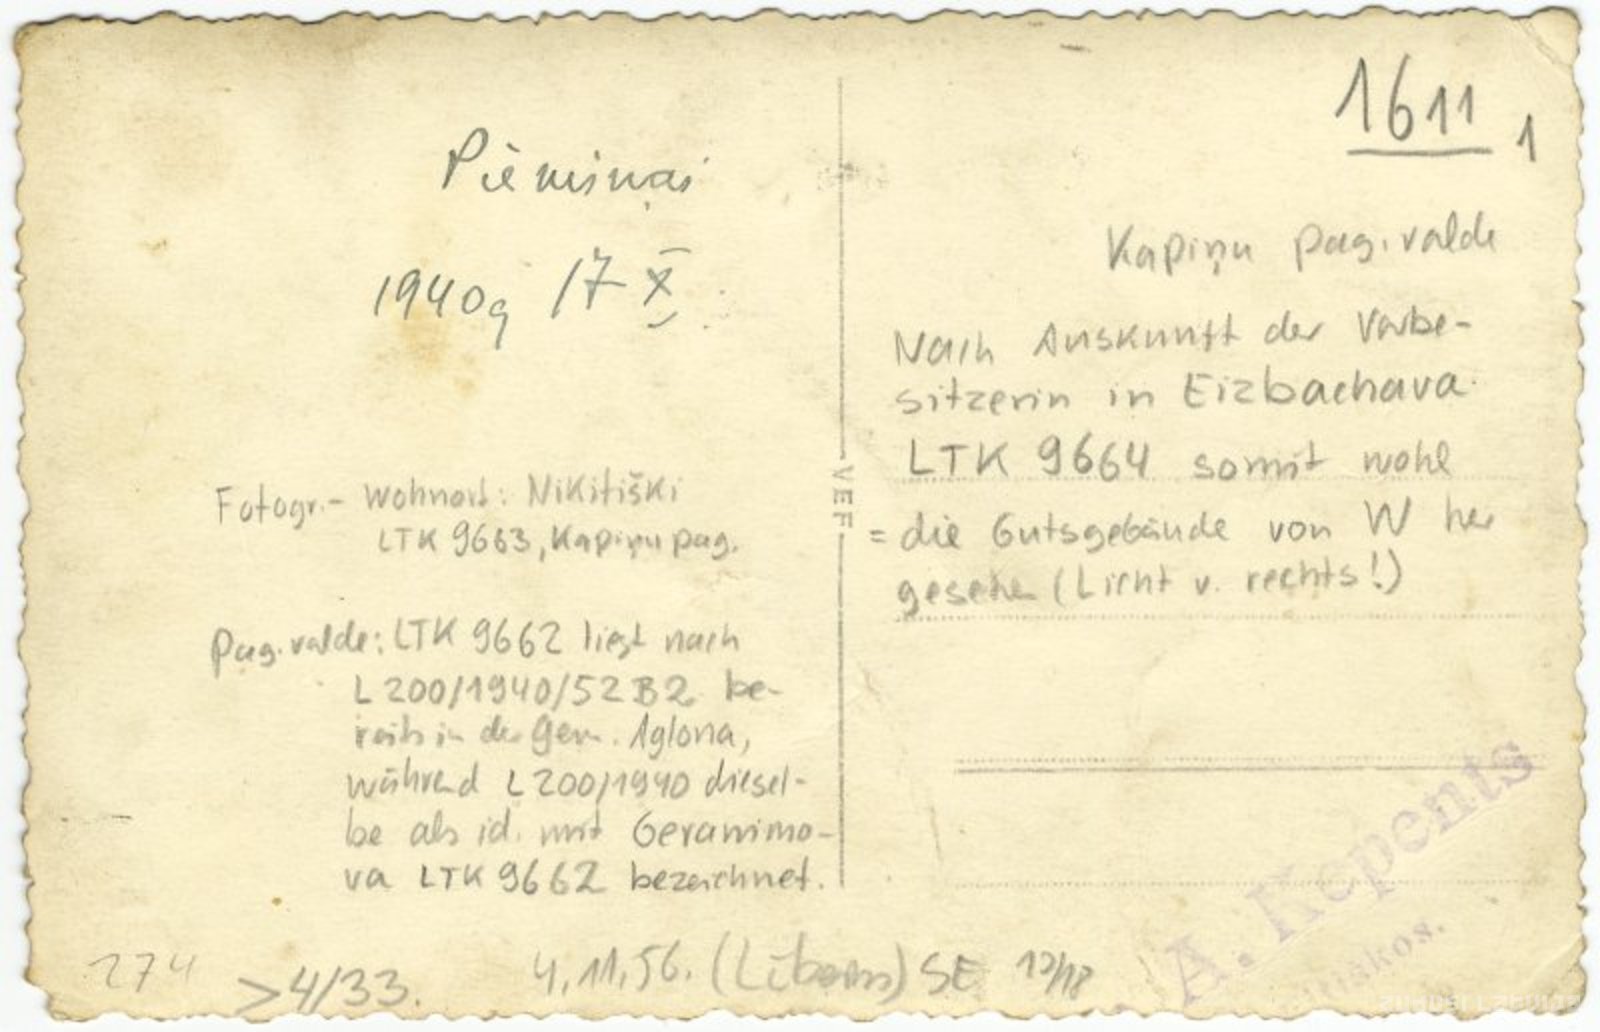 1611
1
Piemiņai
1940g 17 X
Kapiņu pag. valde
Nach Auskunft der Vorbe-
sitzerin in Eizbachava
LTK 9664 somit wohl
= die Gutsgebäude von W her
gesehen (Licht v. rechts!)
VEF
Fotogr.- Wohnort: Nikitiški
LTK 9663, Kapiņu pag.
Pag. valde: LTK 9662 liegt nach
L 200/1940/52 B2 be-
reits in der Gem. Aglona,
während L 200/1940 diesel-
be als id. mit Geranimo-
va LTK 9662 bezeichnet.
A. Kepents
274
>4/33.
4.11.56. SE